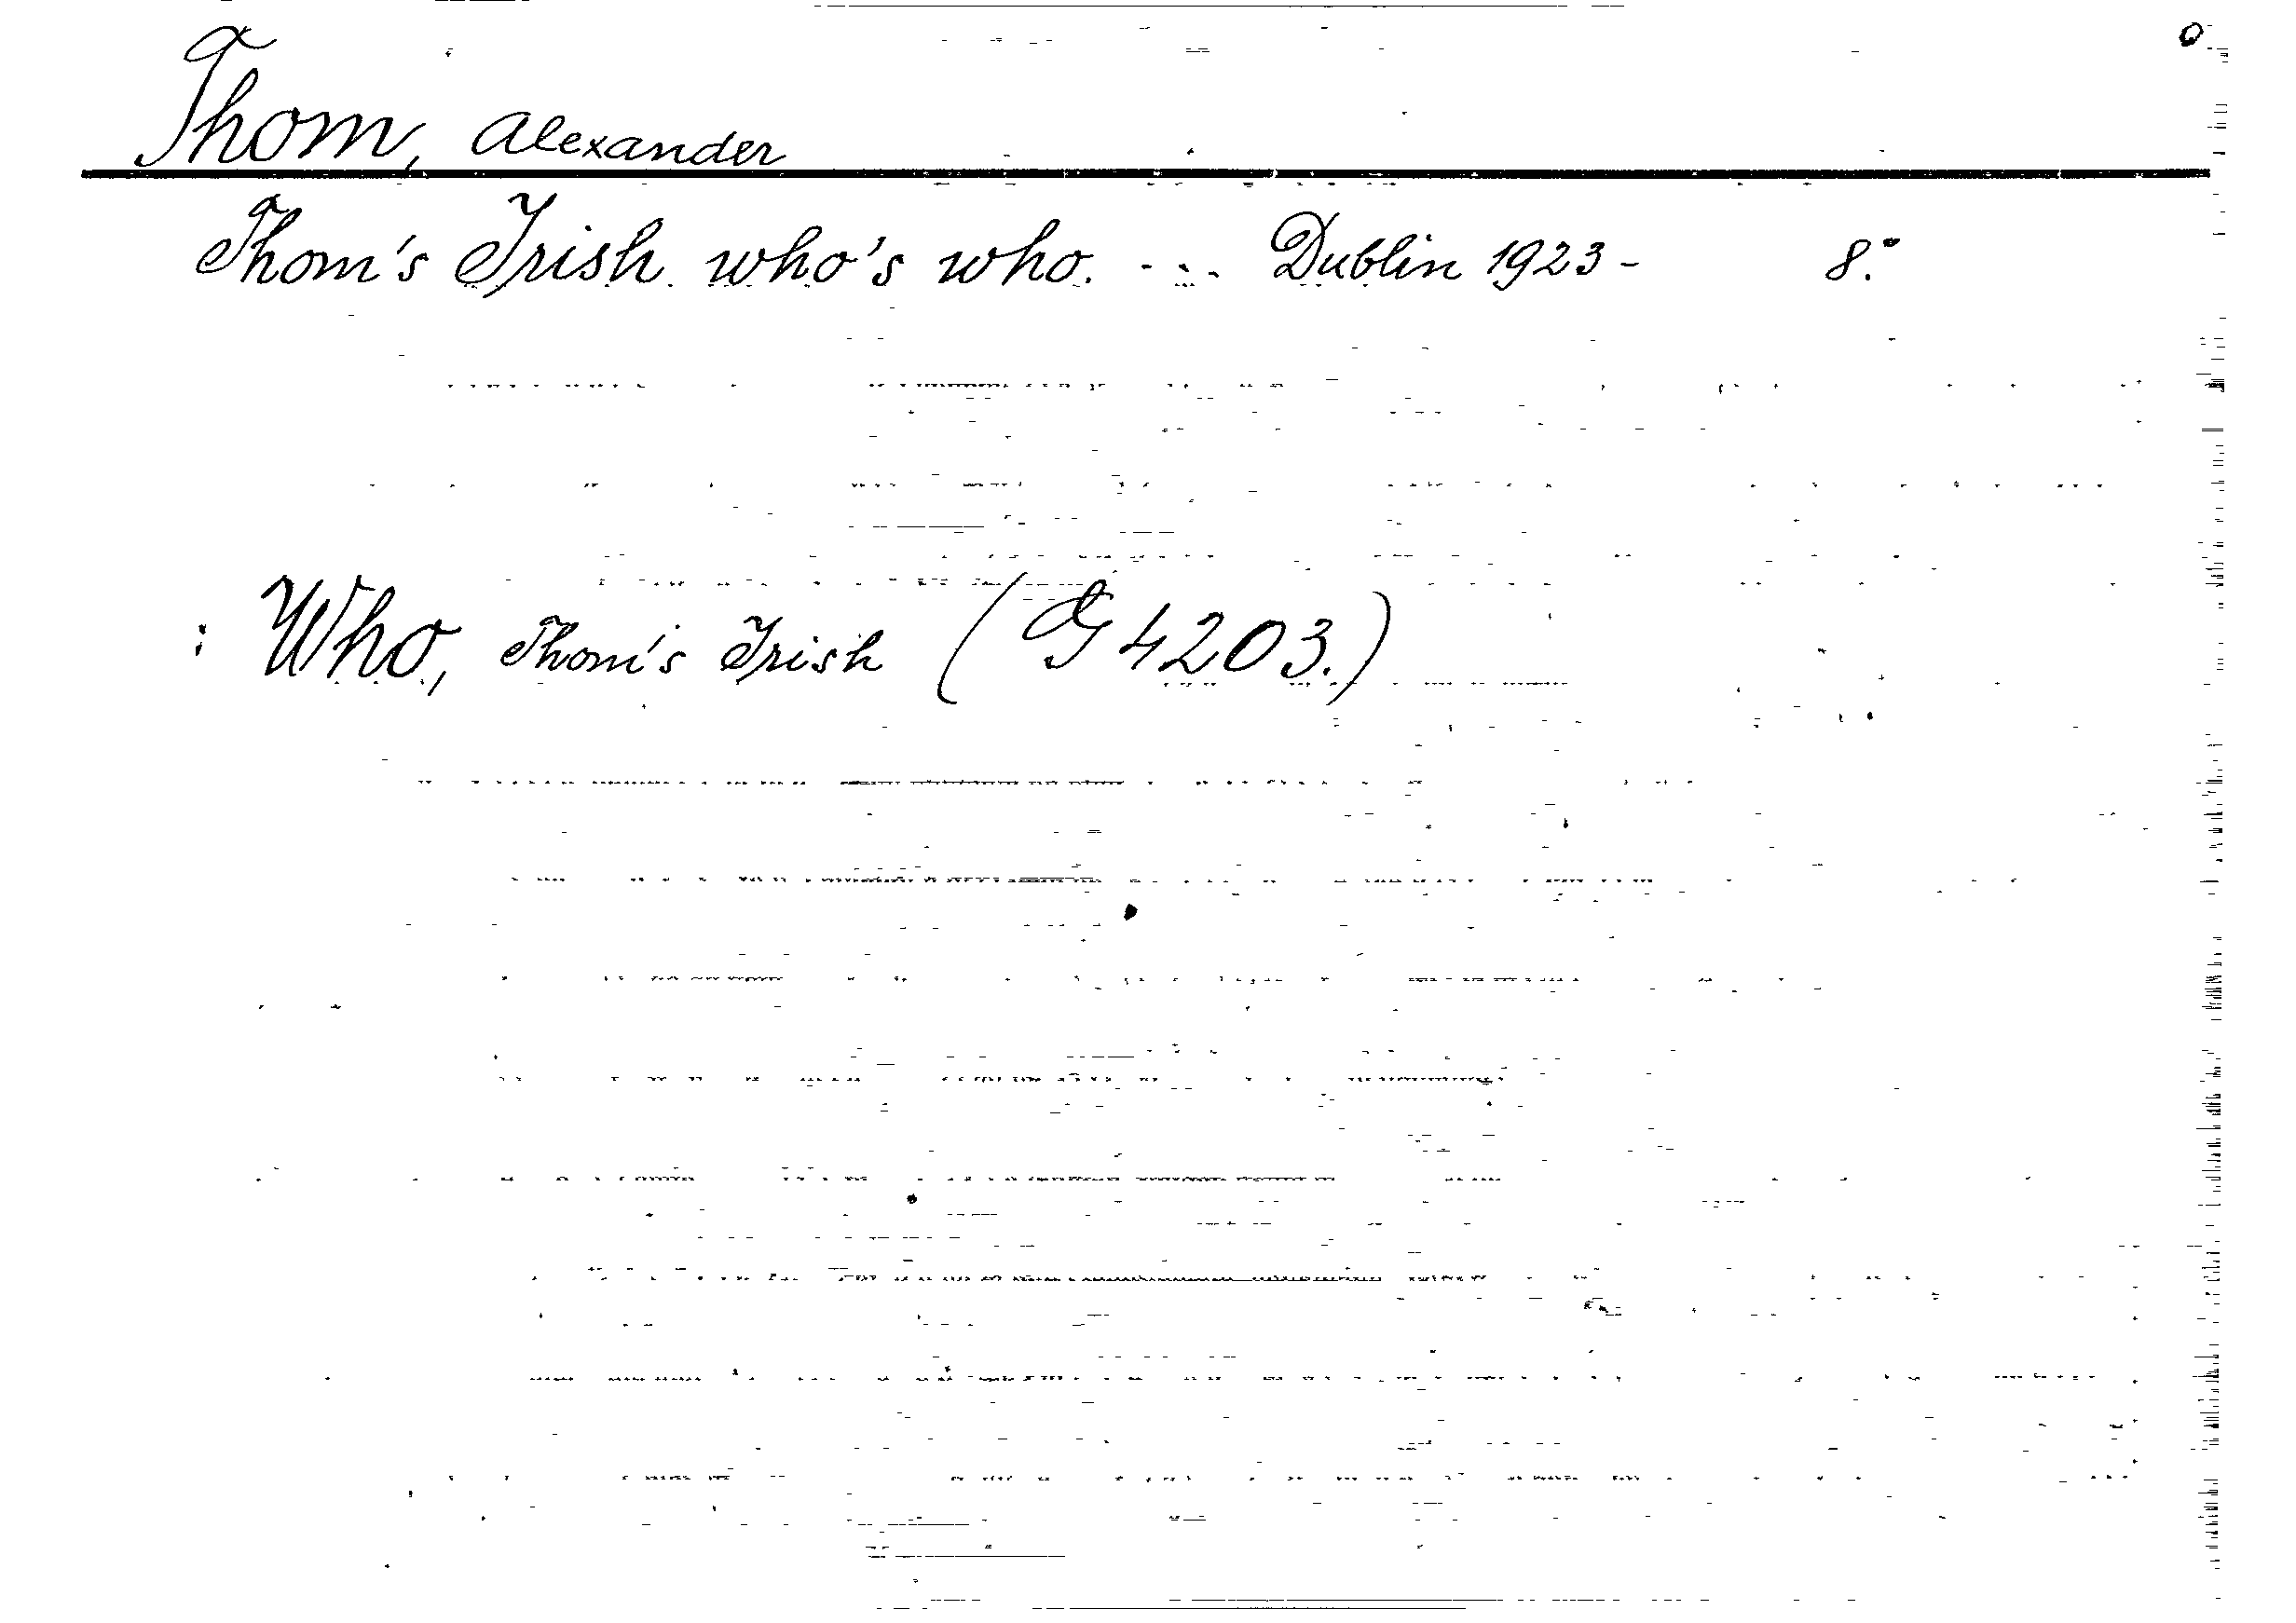 Thom, Alexander
Thom's Irish who's who. ... Dublin 1923- 8:°
: Who, Thom's Irish (G 4203.)